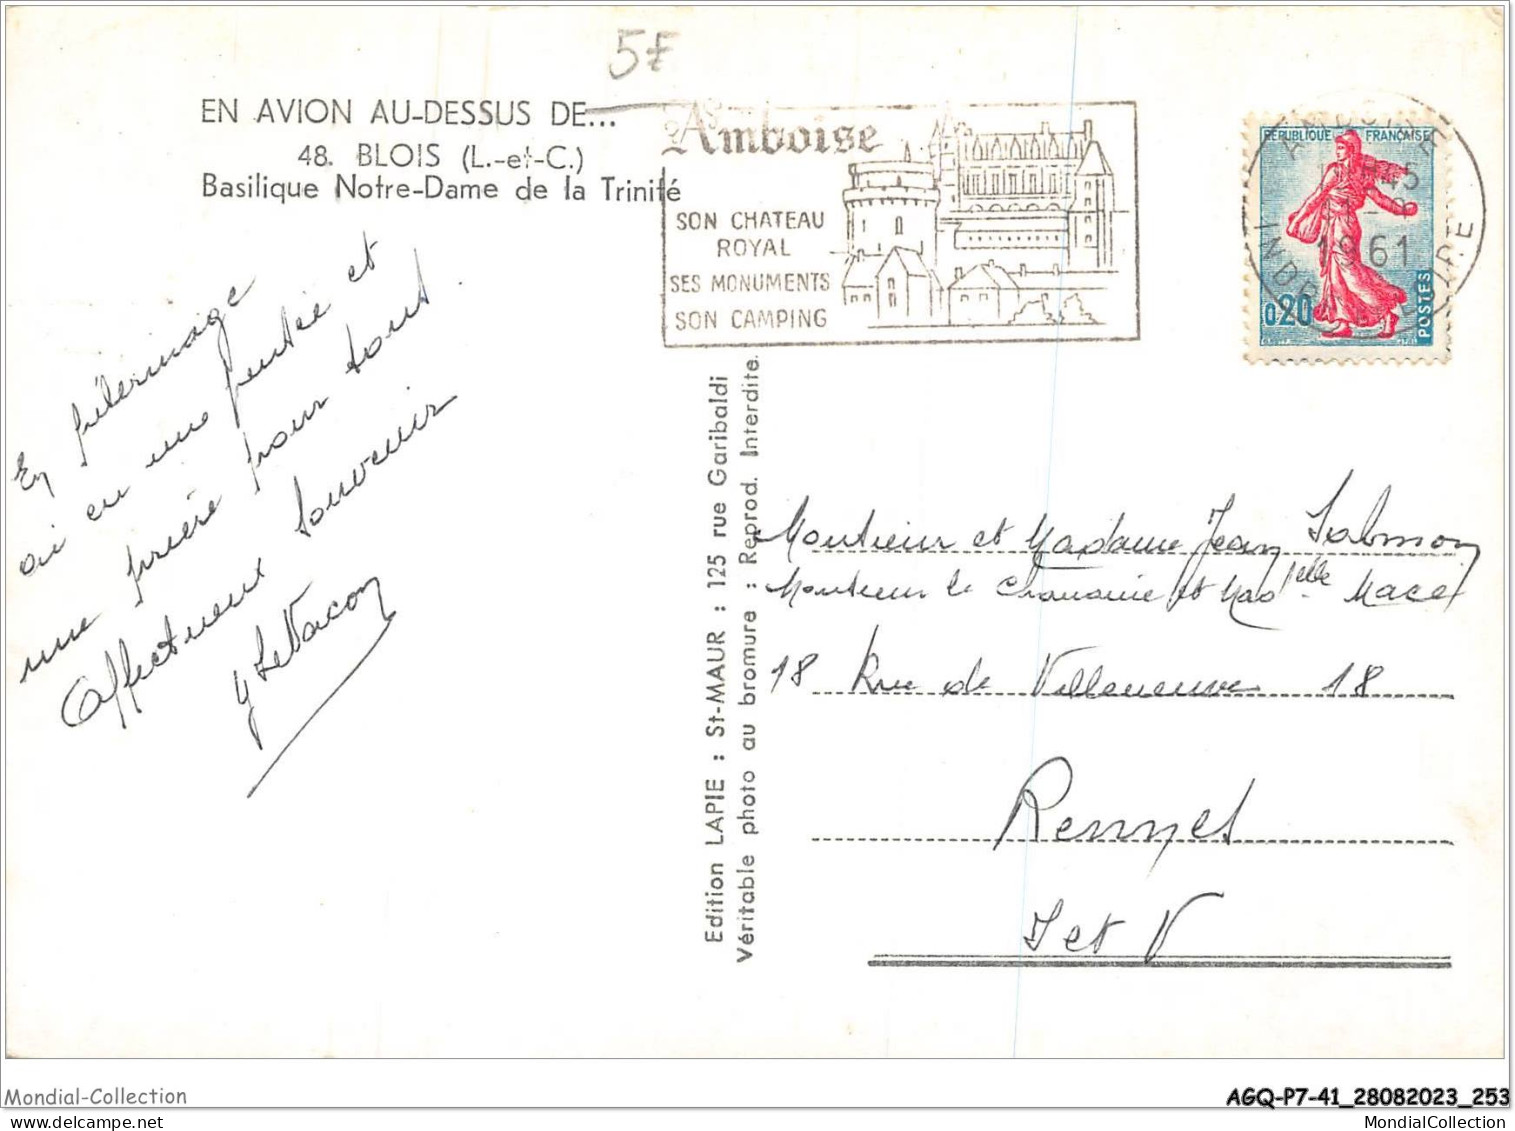 5F
EN AVION AU-DESSUS DE...
48. BLOIS (L.-et-C.)
Basilique Notre-Dame de la Trinité
Amboise
SON CHATEAU
ROYAL
SES MONUMENTS
SON CAMPING
REPUBLIQUE FRANÇAISE
0,20
POSTES
AMBOISE
1961
INDRE ET LOIRE
En pélerinage
où en une pensée et
une prière pour tout
Affectueux Souvenir
Y Levacon
Edition LAPIE : St-MAUR : 125 rue Garibaldi
Véritable photo au bromure : Reprod. Interdite.
Monsieur et Madame Jean Salmon
Monsieur le Chanoine et Mad elle Macé
18 Rue de Villeneuve 18
Rennes
I et V
Mondial-Collection
AGQ-P7-41_28082023_253
MondialCollection